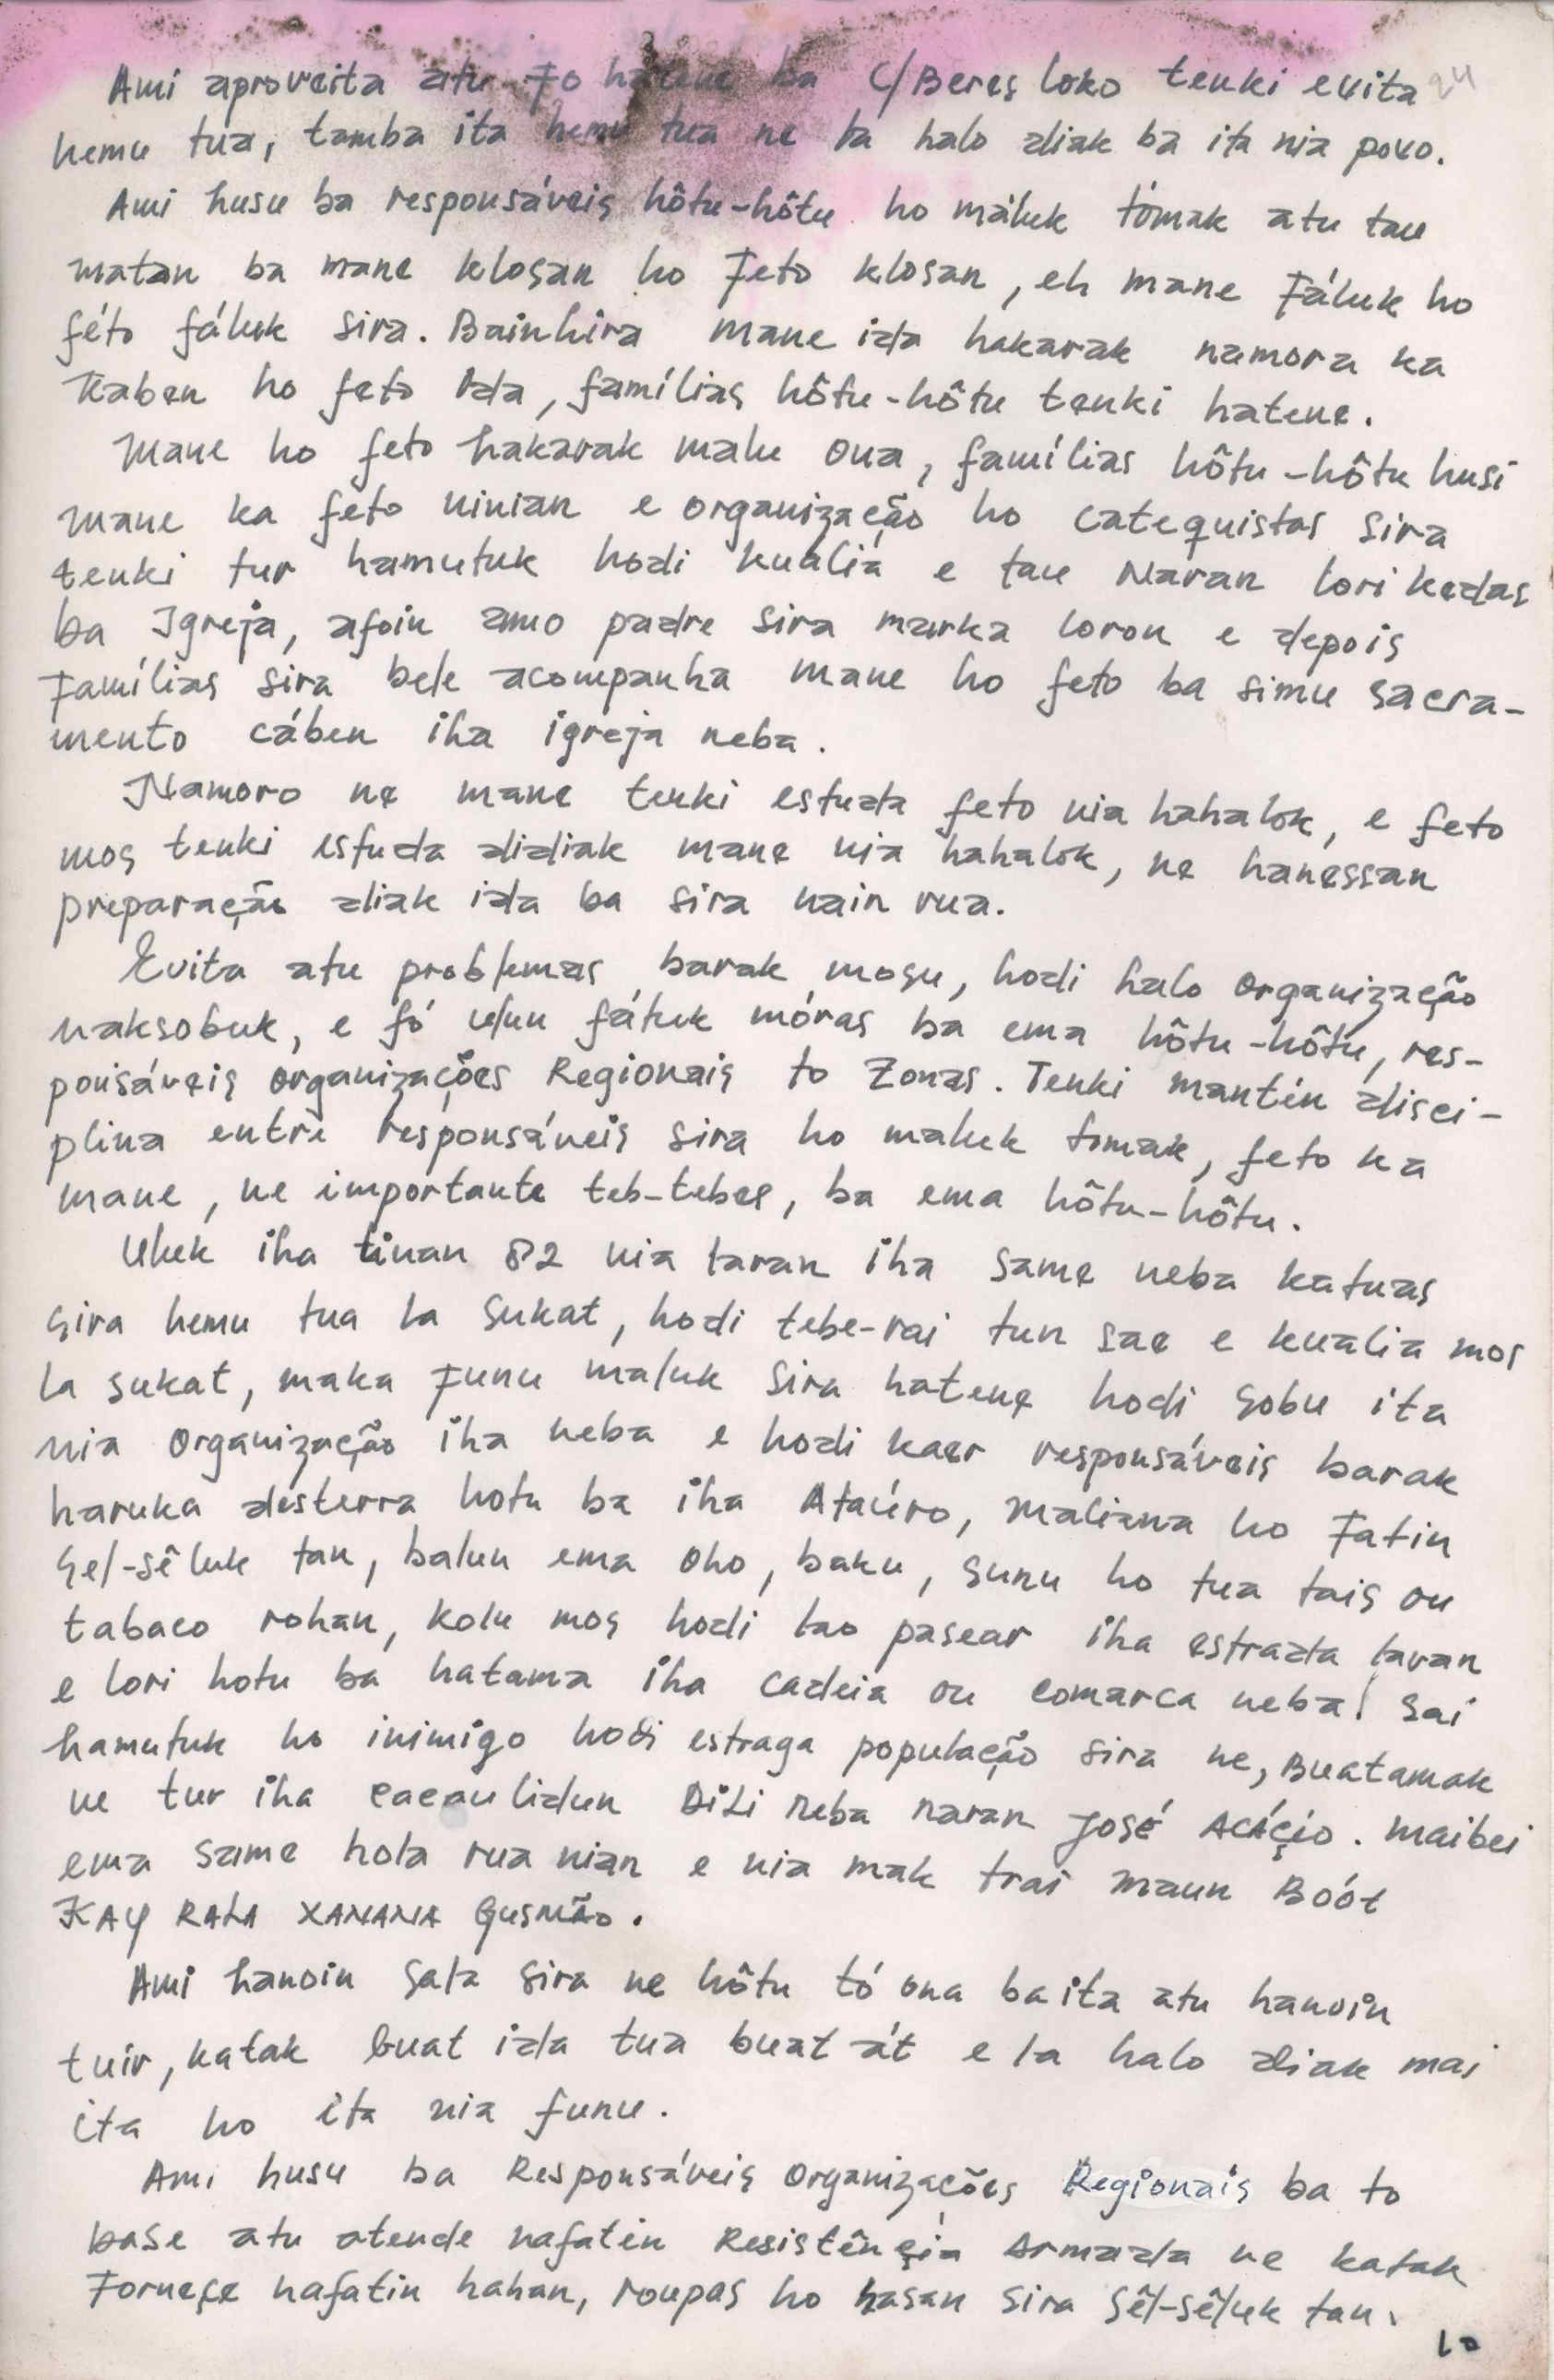 Ami aproveita atu fo hatene ba C/Beres loko tenki evita 94
hemu tua, tamba ita hemu tua ne la halo diak ba ita nia povo.
Ami husu ba responsáveis hôtu-hôtu ho máluk tómak atu tau
matan ba mane klosan ho feto klosan, eh mane fáluk ho
féto fáluk sira. Bainhira mane ida hakarak namora ka
kaben ho feto ida, famílias hôtu-hôtu tenki hatene.
Mane ho feto hakarak malu ona, famílias hôtu-hôtu husi
mane ka feto ninian e organização ho catequistas sira
tenki tur hamutuk hodi kualiá e tau Naran lori kedas
ba Igreja, afoin amo padre sira marka loron e depois
Famílias sira bele acompanha mane ho feto ba simu sacra-
mento cáben iha igreja neba.
Namoro ne mane tenki estuda feto nia hahalok, e feto
mos tenki estuda didiak mane nia hahalok, ne hanessan
preparação diak ida ba sira nain rua.
Evita atu problemas barak mosu, hodi halo organização
naksobuk, e fó ulun fátuk móras ba ema hôtu-hôtu, res-
ponsáveis organizações Regionais to Zonas. Tenki mantén disci-
plina entre responsáveis sira ho maluk tomak, feto ka
mane, ne importante teb-tebes, ba ema hôtu-hôtu.
Uluk iha tinan 82 nia laran iha same neba katuas
sira hemu tua la sukat, hodi tebe-rai tun sae e kualia mos
la sukat, maka funu maluk sira hatene hodi sobu ita
nia organização iha neba e hodi kaer responsáveis barak
haruka desterra hotu ba iha Ataúro, Maliana ho Fatin
sel-sêluk tan, balun ema oho, baku, sunu ho tua tais ou
tabaco rohan, kolu mos hodi lao pasear iha estrada laran
e lori hotu ba hatama iha cadeia ou comarca neba! Sai
hamutuk ho inimigo hodi estraga população sira ne, Buatamak
ne tur iha cacaulidun Dili neba naran José Acácio. Maibei
ema same hola rua nian e nia mak trai Maun Boót
KAY RALA XANANA Gusmão.
Ami hanoin sala sira ne hôtu tó ona ba ita atu hanoin
tuir, katak buat ida tua buat át e la halo diak mai
ita ho ita nia funu.
Ami husu ba Responsáveis Organizações Regionais ba to
base atu atende nafatin Resistência Armada ne katak
Fornece nafatin hahan, roupas ho hasan sira sêl-sêluk tan.
10